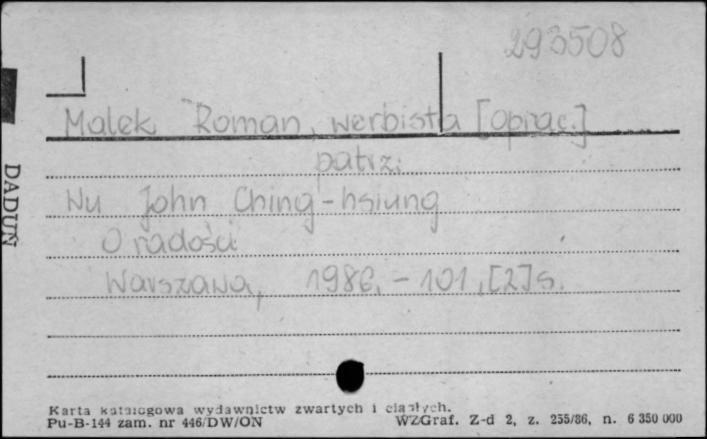 293508
Malek Roman, werbista [oprac.]
patrz:
Wu John Ching-hsiung
O radości
Warszawa, 1986. - 101, [2] s.
DADUŃ
Karta katalogowa wydawnictw zwartych i ciągłych.
Pu-B-144 zam. nr 446/DW/ON WZGraf. Z-d 2, z. 255/86, n. 6 350 000